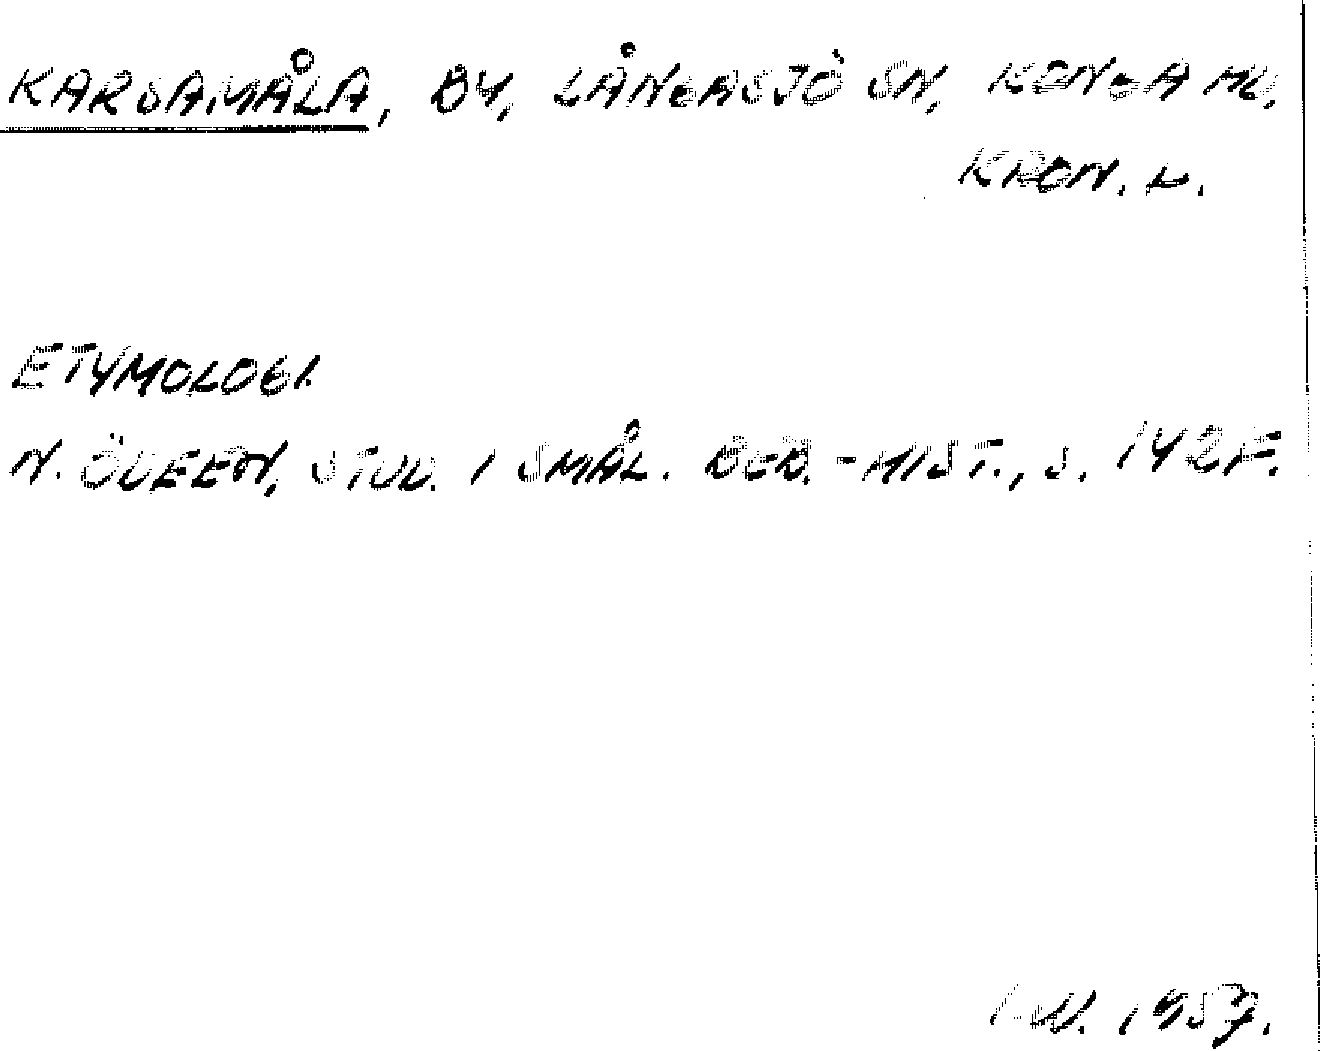 KARSAMÅLA, BY, LÅNGASJÖ SN, KONGA HD,
KRON. L.
ETYMOLOGI.
N. ÖDEEN, STUD. I SMÅL. BEB.-HIST., S. 142 F.
1957.